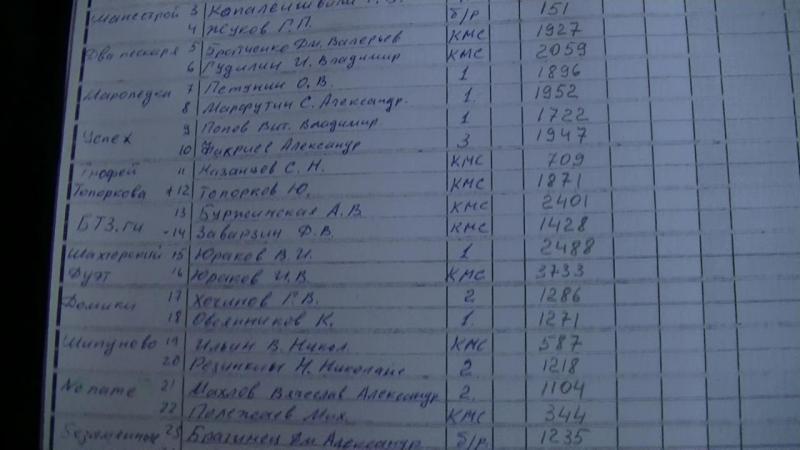 Манестрой 3 Капаленшвили б/р 151
4 Жуков Г.П. КМС 1927
Два пескаря 5 Бройченко Дм. Валерьев КМС 2059
6 Гудилин И. Владимир 1 1896
Маропедка 7 Петунин О.В. 1 1952
8 Марфутин С. Александр. 1 1722
Успех 9 Попов Вит. Владимир 3 1947
10 Фикриев Александр КМС 709
Трофей 11 Казанцев С.Н. КМС 1871
Топоркова +12 Топорков Ю. КМС 2401
БТЗ.ru 13 Буржинская А.В. КМС 1428
-14 Заварзин Ф.В. 1 2488
Шахтерский 15 Юраков В.И. КМС 3733
Дуэт 16 Юраков И.В.
Домики 17 Хочинов Г.В. 2 1286
18 Овсянников К. 1 1271
Шипуново 19 Ильин В. Никол. КМС 587
20 Резинкин Н. Николаев 2 1218
No name 21 Махлов Вячеслав Александр 2 1104
22 Полежаев Мих. КМС 344
Безаменные 23 Брагинец Дм Александр б/р. 1235